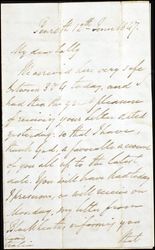 12th June 1847.
My dear Sally
We arrived here very safe
between 3 & 4 today, and I
had the very great pleasure
of receiving your letter dated
yesterday: so that I have,
thank God, a favorable account
of you all up to the latest
date. You will have had today
& will receive on
Monday, my letter from
informing you
that